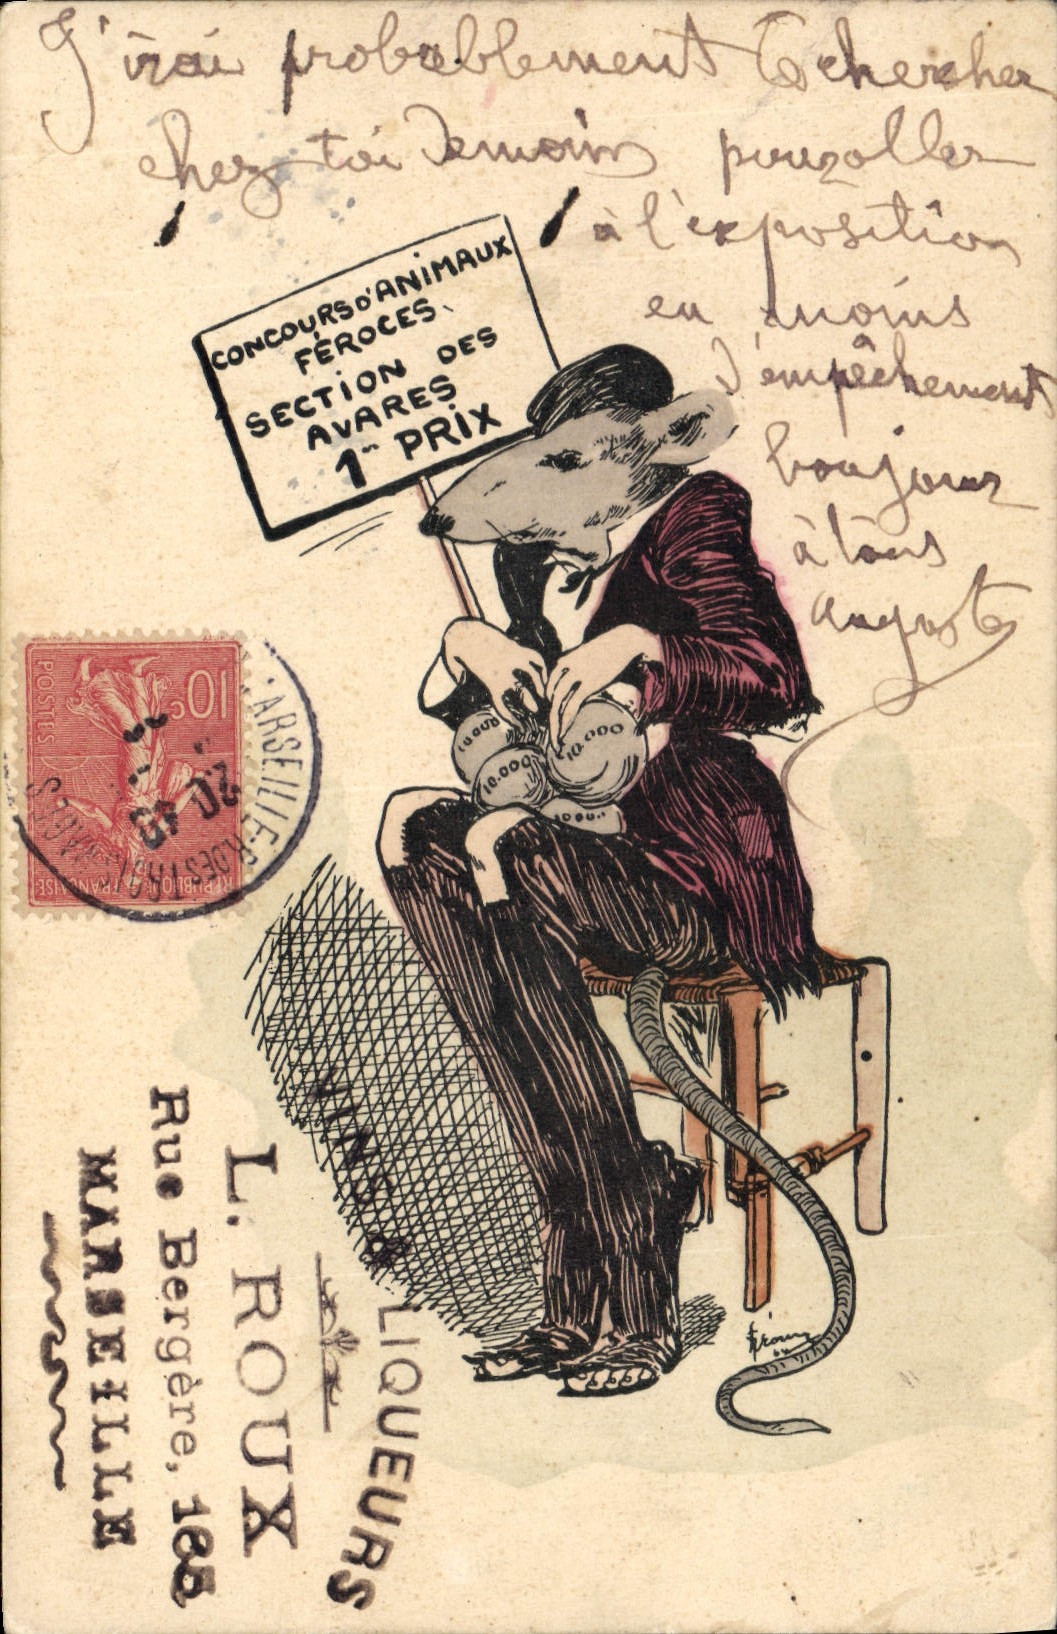 J'irai probablement te chercher
chez toi demain pour aller
à l'exposition
au moins
d'empêchement
bonjour
à tous
Auguste
CONCOURS D'ANIMAUX
FÉROCES.
SECTION DES
AVARES
1er PRIX
10.000
10.000
10.000
10.000
10c
POSTES
RÉPUBLIQUE FRANÇAISE
MARSEILLE
VINS & LIQUEURS
L. ROUX
Rue Bergère, 165
MARSEILLE